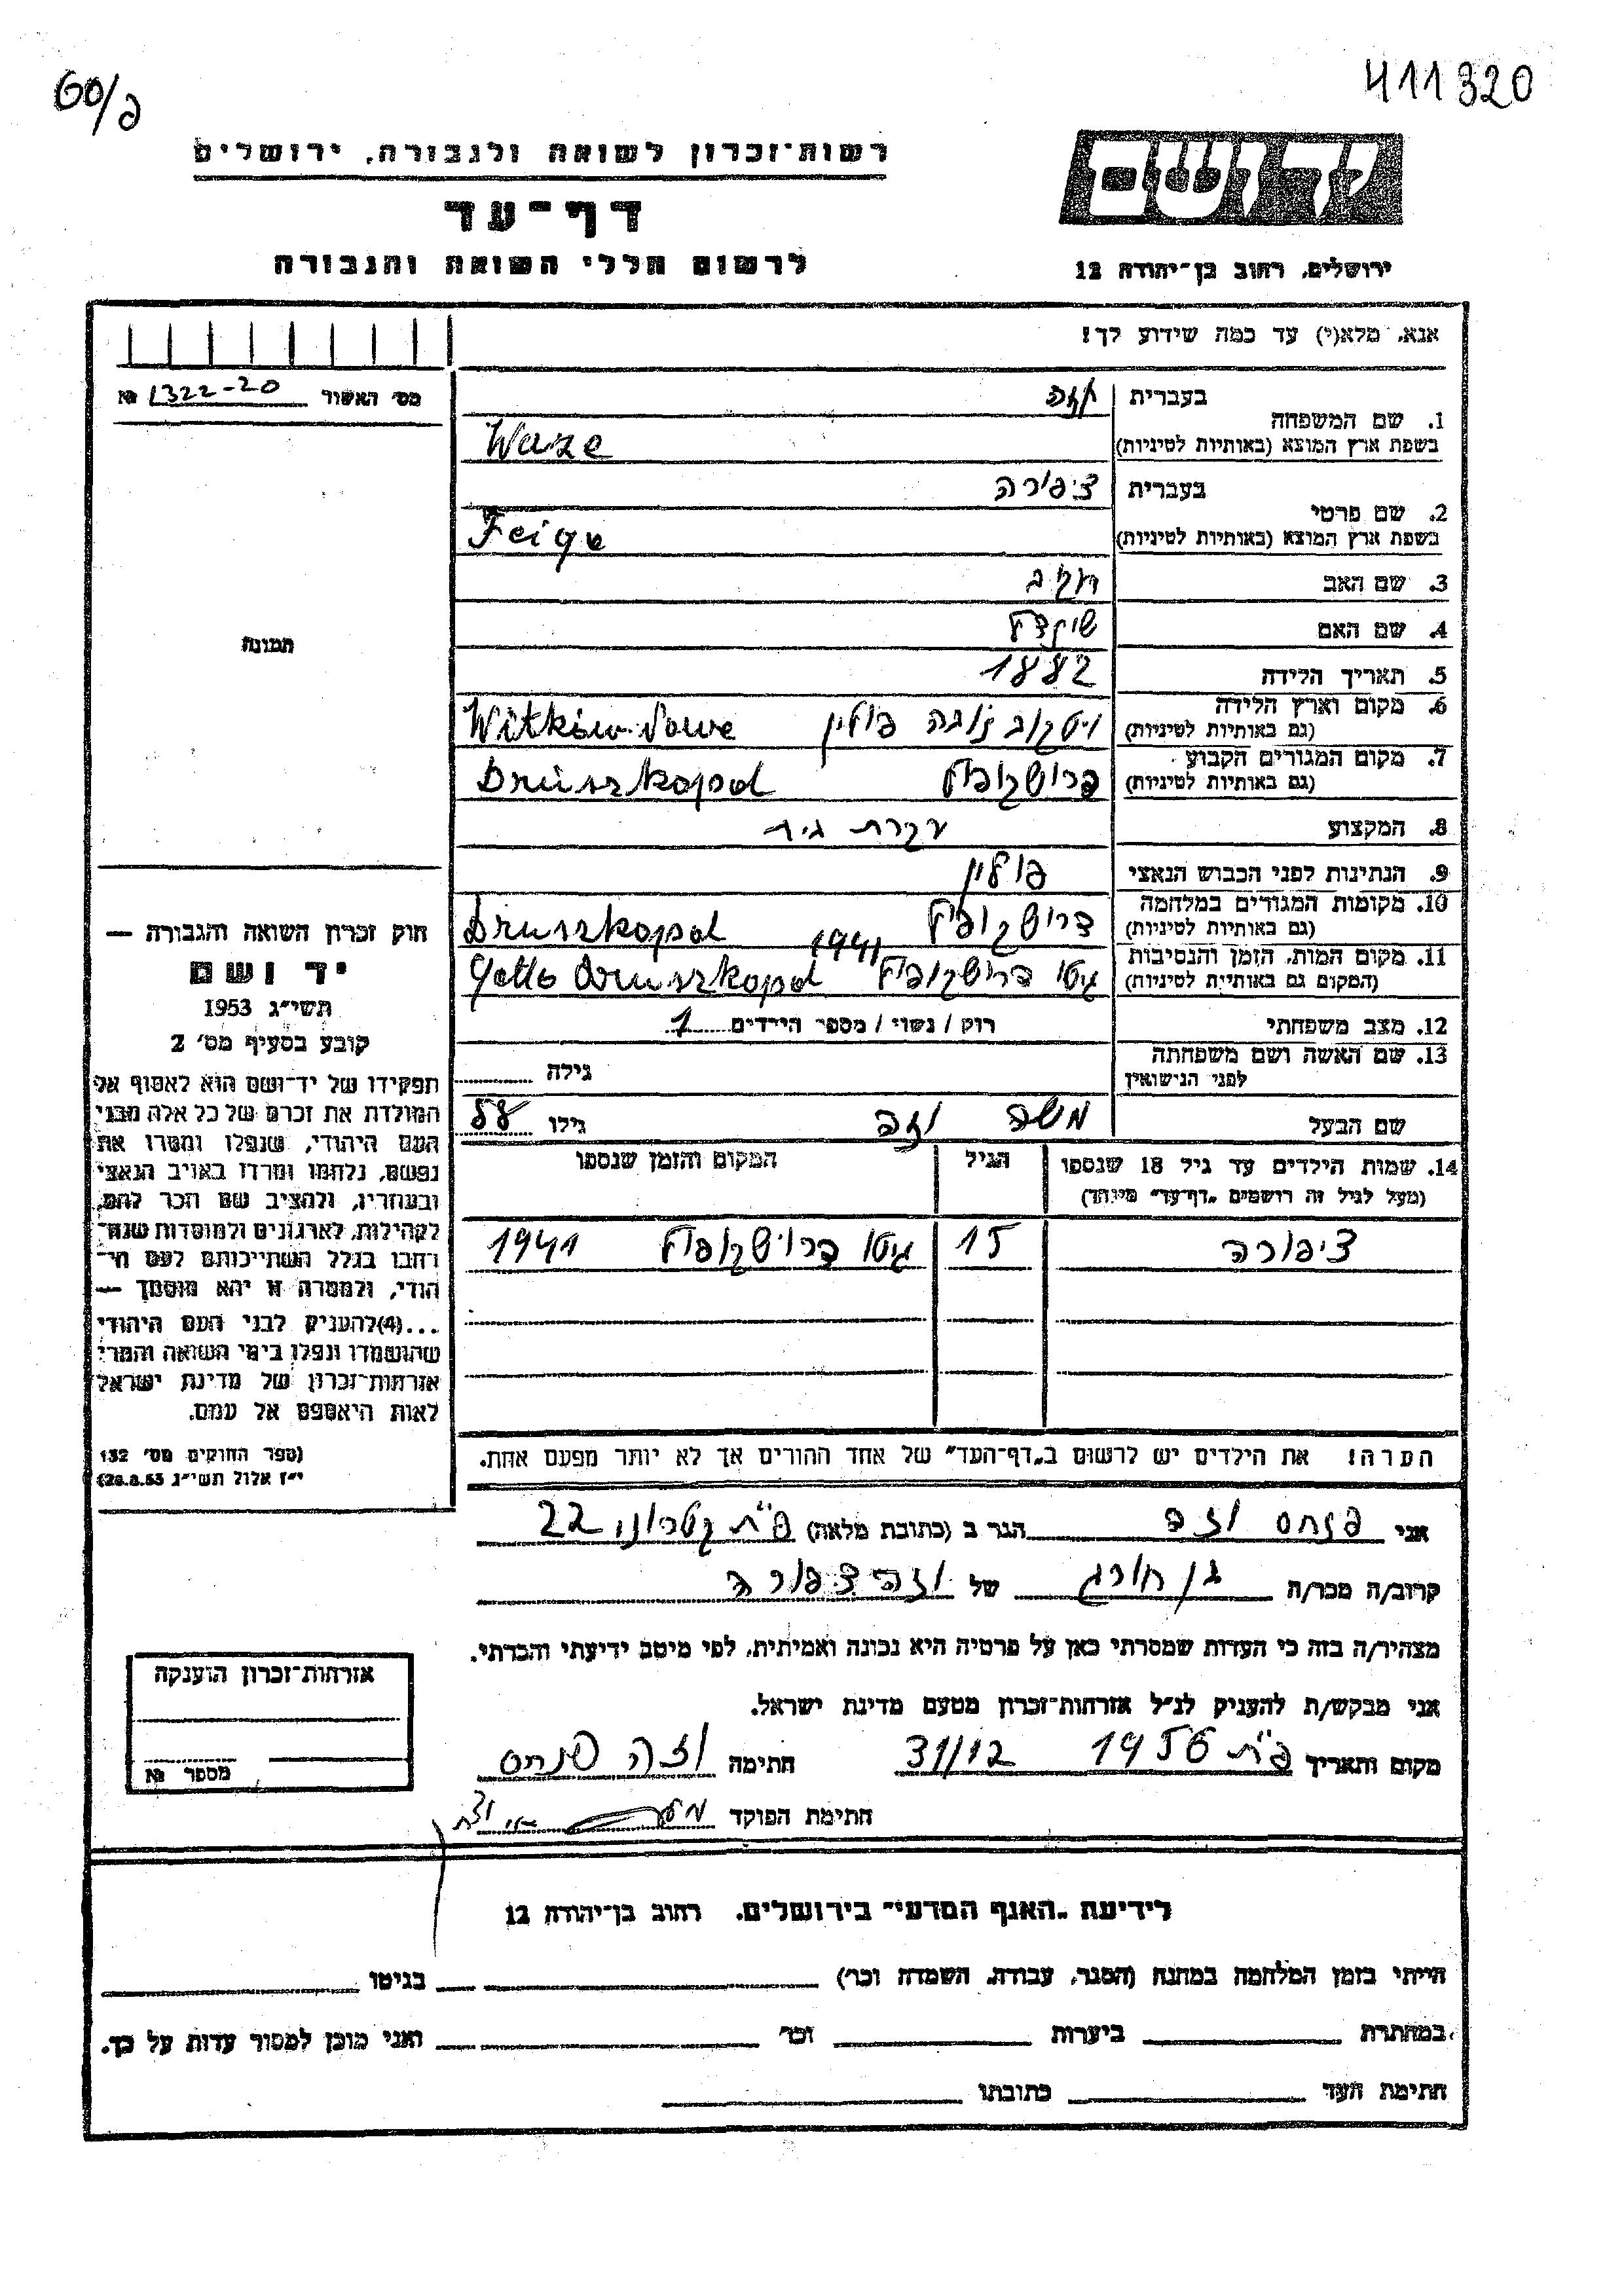 60/פ
411320
רשות־זכרון לשואה ולגבורה, ירושלים
דף־עד
לרשום חללי השואה והגבורה
יד ושם
ירושלים, רחוב בן־יהודה 12
אנא, מלא(י) עד כמה שידוע לך!
מס׳ האשור 1322-20 №
1. שם המשפחה
בעברית וזה
בשפת ארץ המוצא (באותיות לטיניות) Waze
2. שם פרטי
בעברית ציפורה
בשפת ארץ המוצא (באותיות לטיניות) Feige
3. שם האב
4. שם האם
5. תאריך הלידה 1882
6. מקום וארץ הלידה
(גם באותיות לטיניות) ויטקוב נובה פולין Witków-Nowe
7. מקום המגורים הקבוע
(גם באותיות לטיניות) דרושקופול Druszkopol
8. המקצוע עקרת בית
9. הנתינות לפני הכבוש הנאצי פולין
10. מקומות המגורים במלחמה
(גם באותיות לטיניות) דרושקופול Druszkopol
11. מקום המות, הזמן והנסיבות
(המקום גם באותיות לטיניות) גיטו דרושקופול 1941 Getto Druszkopol
12. מצב משפחתי רוק / נשוי / מספר הילדים 1
13. שם האשה ושם משפחתה
לפני הנישואין גילה
שם הבעל משה וזה גילו 58
14. שמות הילדים עד גיל 18 שנספו
(מעל לגיל זה רושמים „דף־עד״ מיוחד)
הגיל
המקום והזמן שנספו
ציפורה 15 גיטו דרושקופול 1941
הערה! את הילדים יש לרשום ב„דף־העד״ של אחד ההורים אך לא יותר מפעם אחת.
תמונה
חוק זכרון השואה והגבורה —
יד ושם
תשי״ג 1953
קובע בסעיף מס׳ 2
תפקידו של יד־ושם הוא לאסוף אל
המולדת את זכרם של כל אלה מבני
העם היהודי, שנפלו ומסרו את
נפשם, נלחמו ומרדו באויב הנאצי
ובעוזריו, ולהציב שם וזכר להם,
לקהילות, לארגונים ולמוסדות שנח־
רחבו בגלל השתייכותם לעם הי־
הודי, ולמטרה זו יהא מוסמך —
...(4)להעניק לבני העם היהודי
שהושמדו ונפלו בימי השואה והמרי
אזרחות־זכרון של מדינת ישראל
לאות היאספם אל עמם.
(ספר החוקים מס׳ 132
י״ז אלול תשי״ג 28.8.53)
אני פנחס וזה הגר ב (כתובת מלאה) פ״ת קטרוני 22
קרוב/ה מכר/ה בן חורג של וזה ציפורה
מצהיר/ה בזה כי העדות שמסרתי כאן על פרטיה היא נכונה ואמיתית, לפי מיטב ידיעתי והכרתי.
אני מבקש/ת להעניק לנ״ל אזרחות־זכרון מטעם מדינת ישראל.
מקום ותאריך פ״ת 1956 31/12 חתימה וזה פנחס
חתימת הפוקד
אזרחות־זכרון הוענקה
מספר №
לידיעת „האגף המדעי״ בירושלים, רחוב בן־יהודה 12
הייתי בזמן המלחמה במחנה (הסגר, עבודה, השמדה וכר) בגיטו
במחתרת ביערות וכר ואני מוכן למסור עדות על כך.
חתימת העד כתובתו